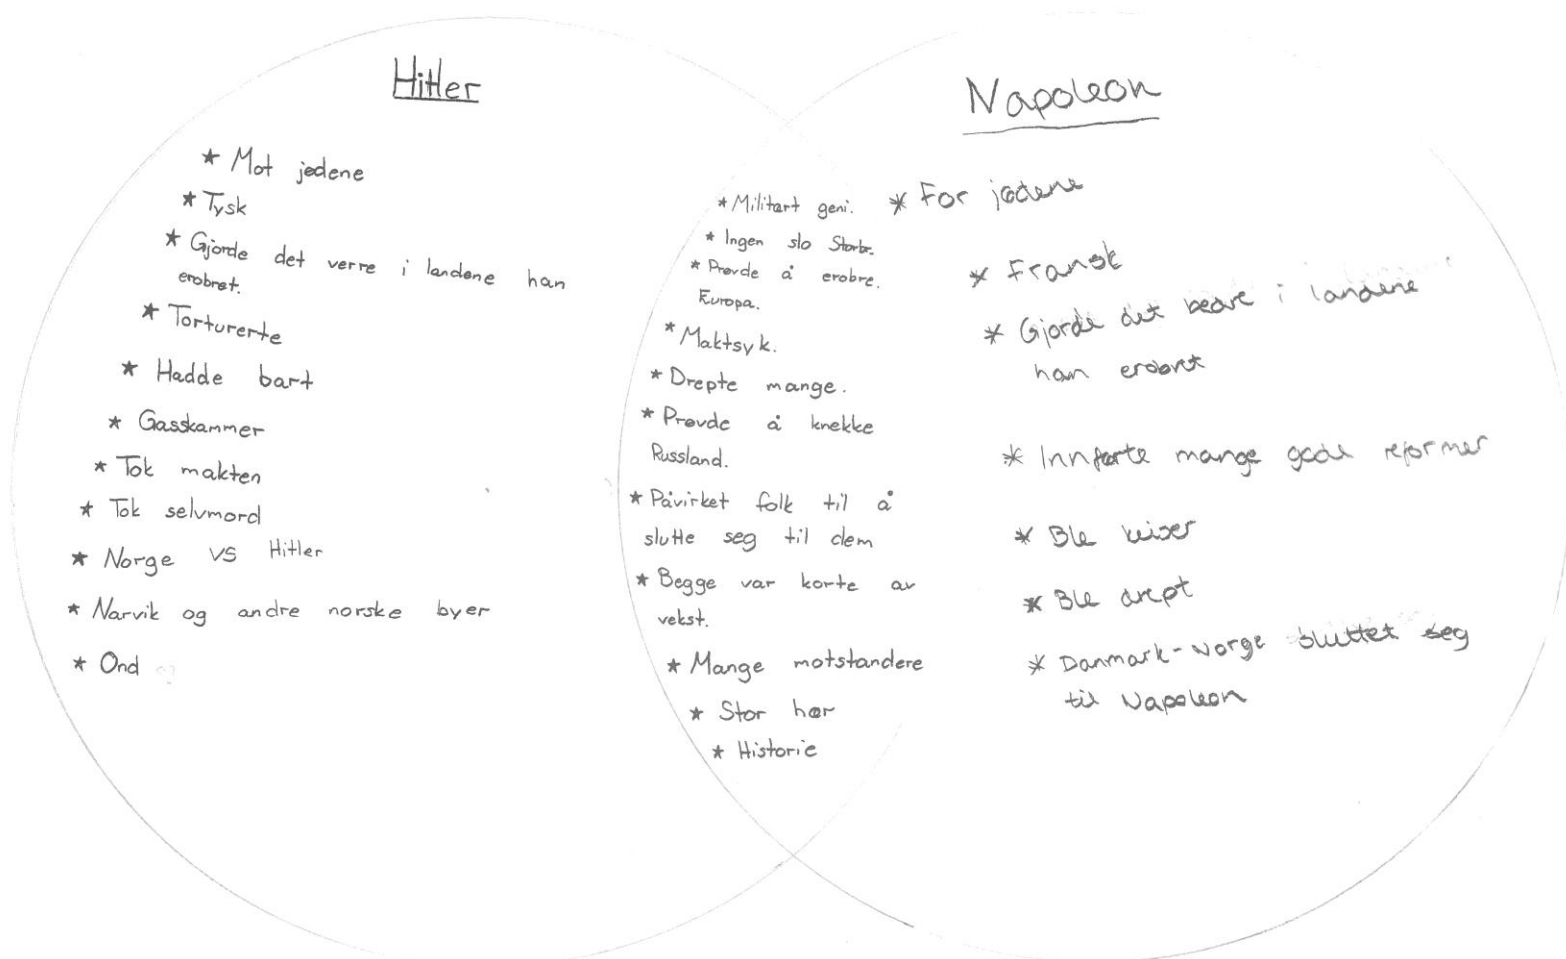 Hitler
* Mot jødene
* Tysk
* Gjorde det verre i landene han
erobret.
* Torturerte
* Hadde bart
* Gasskammer
* Tok makten
* Tok selvmord
* Norge VS Hitler
* Narvik og andre norske byer
* Ond
* Militært geni.
* Ingen slo Storbr.
* Prøvde å erobre.
Europa.
* Maktsyk.
* Drepte mange.
* Prøvde å knekke
Russland.
* Påvirket folk til å
slutte seg til dem
* Begge var korte av
vekst.
* Mange motstandere
* Stor hær
* Historie
Napoleon
* For jødene
* Fransk
* Gjorde det bedre i landene
han erobret
* Innførte mange gode reformer
* Ble keiser
* Ble drept
* Danmark-Norge sluttet seg
til Napoleon